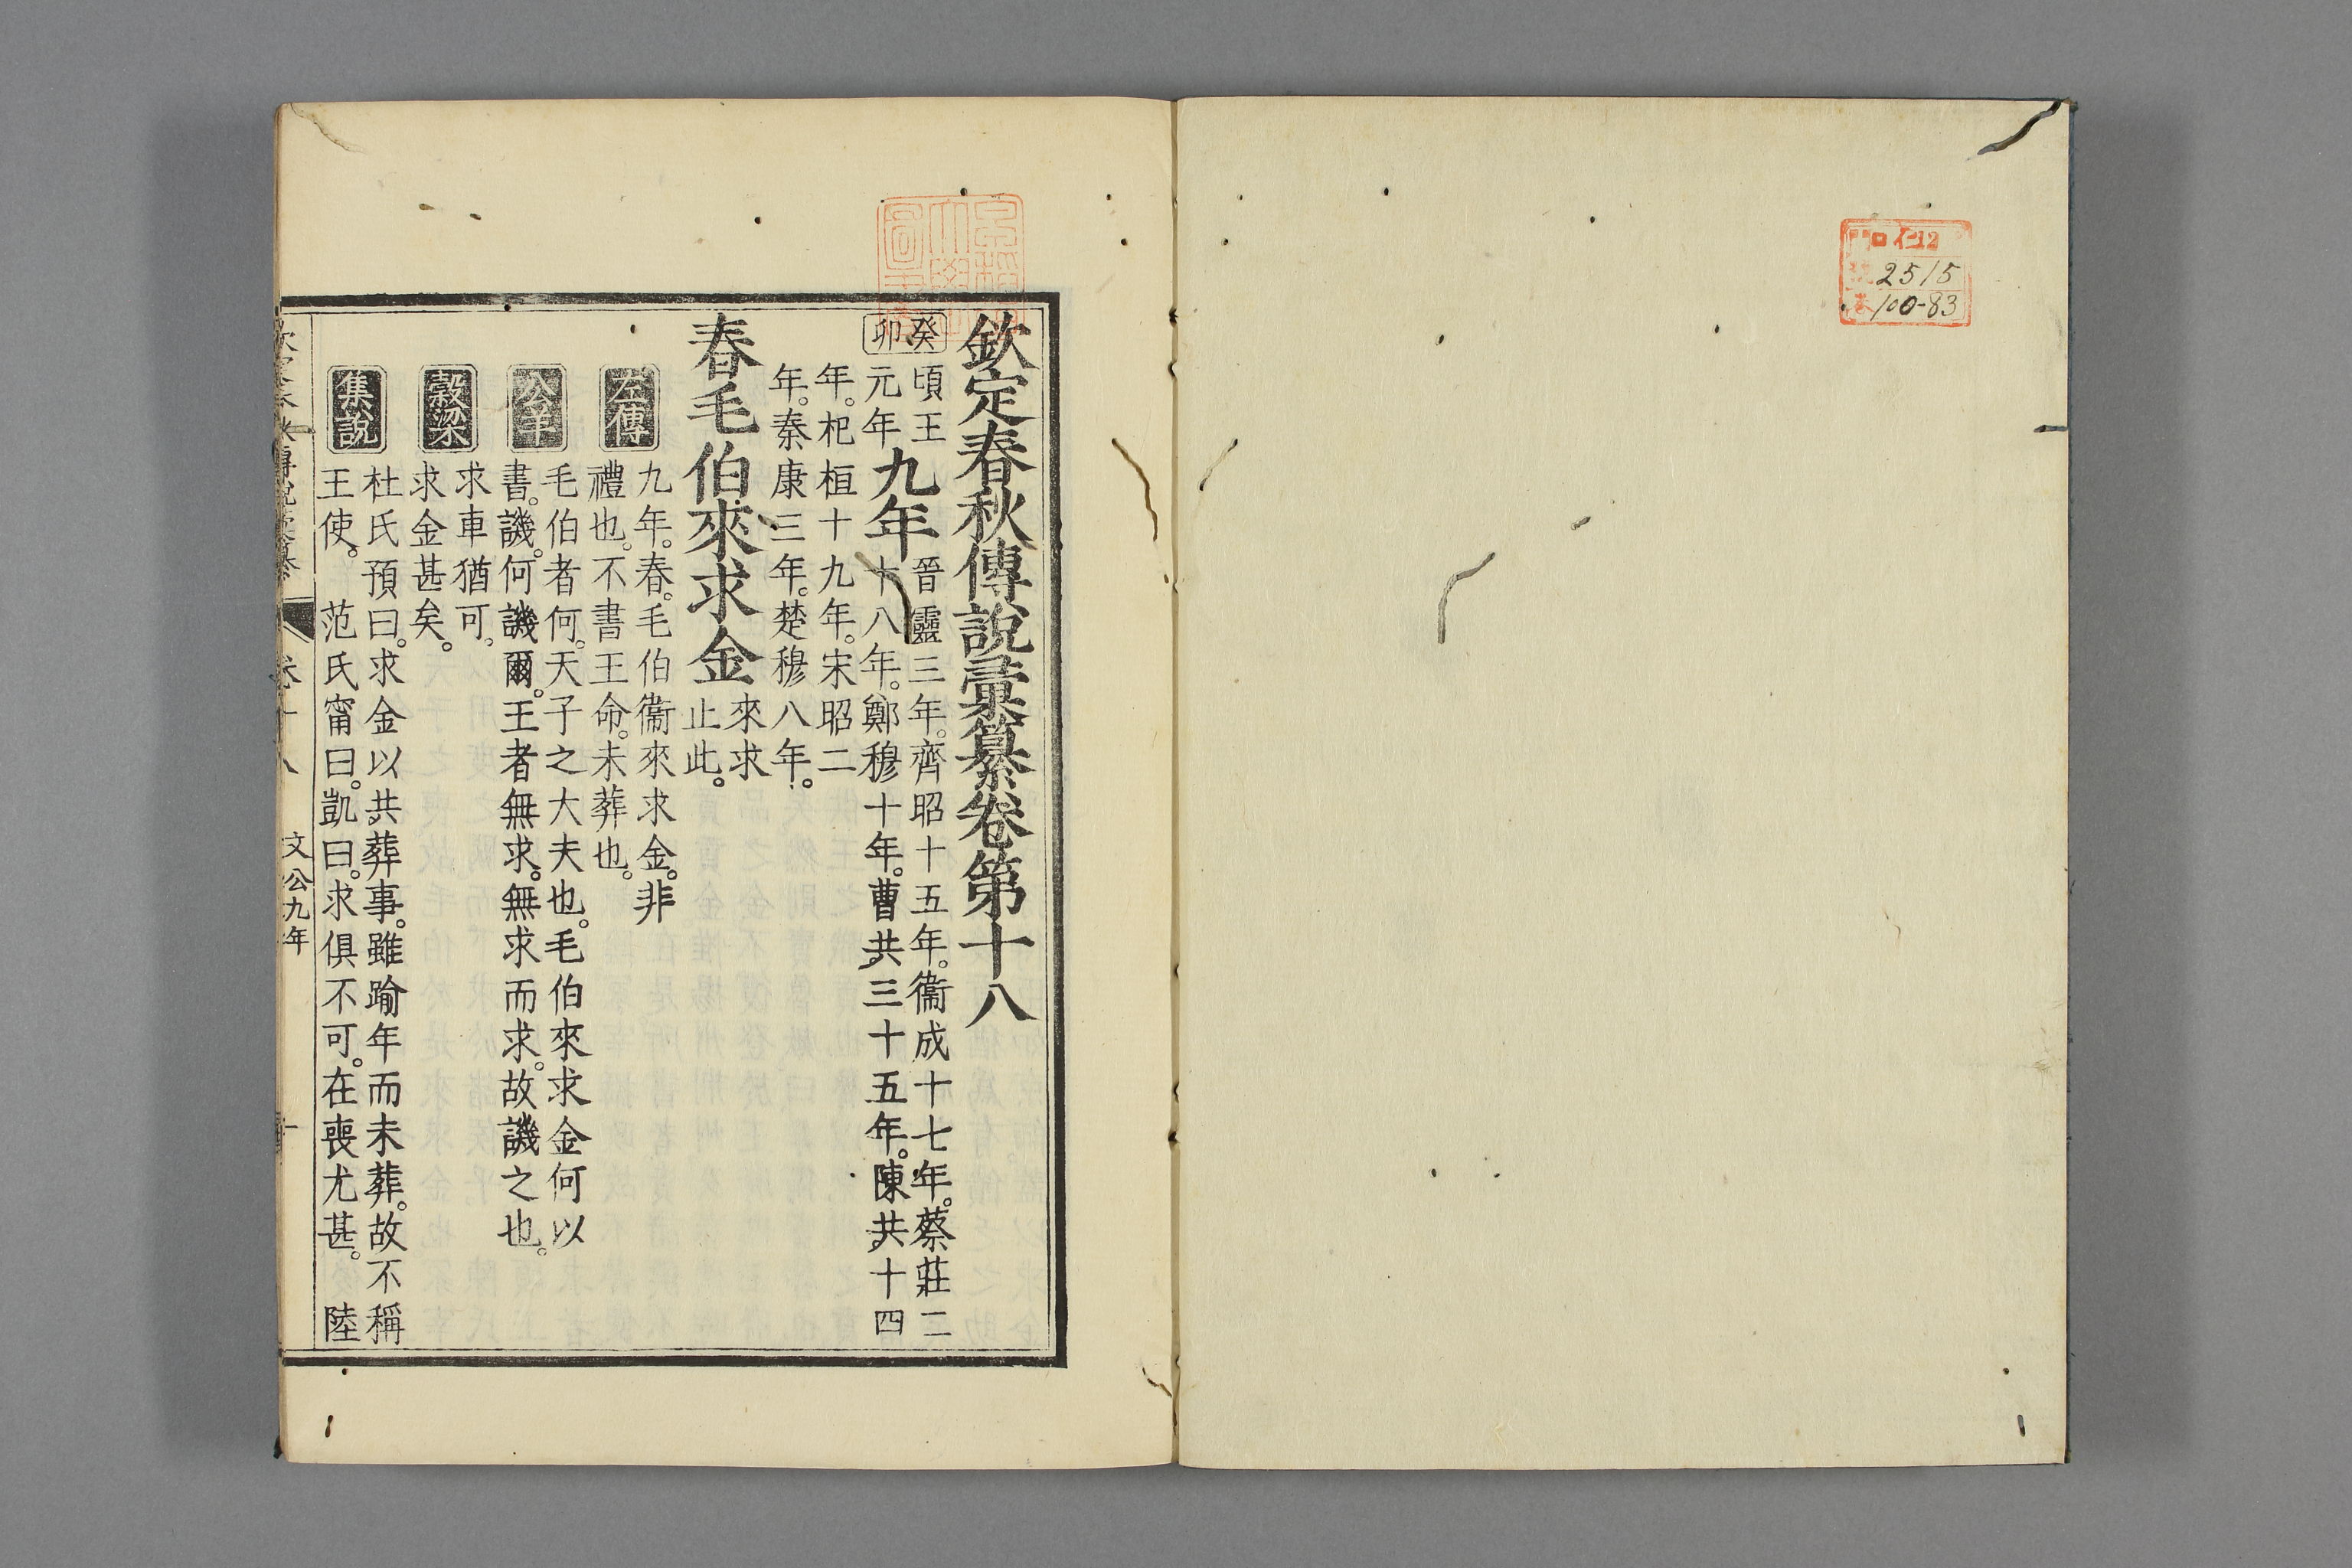 仁12
2515
100-83
欽定春秋傳說彙纂卷第十八
癸卯
頃王元年
九年
晉靈三年。齊昭十五年。衞成十七年。蔡莊二
十八年。鄭穆十年。曹共三十五年。陳共十四
年。杞桓十九年。宋昭二
年。秦康三年。楚穆八年。
春毛伯來求金
來求
止此。
左傳
九年。春。毛伯衞來求金。非
禮也。不書王命。未葬也。
公羊
毛伯者何。天子之大夫也。毛伯來求金何以
書。譏。何譏爾。王者無求。無求而求。故譏之也。
穀梁
求車猶可。
求金甚矣。
集說
杜氏預曰。求金以共葬事。雖踰年而未葬。故不稱
王使。 范氏甯曰。凱曰。求俱不可。在喪尤甚。 陸
卷十八
文公九年